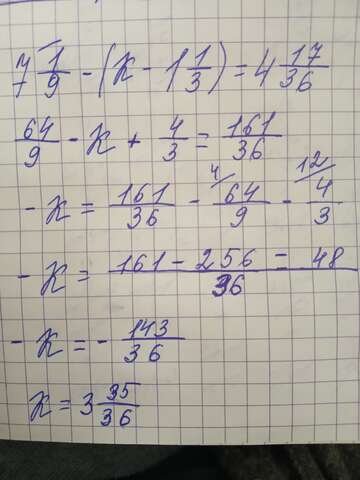 7 1/9 - (К - 1 1/3) = 4 17/36
64/9 - К + 4/3 = 161/36
- К = 161/36 - 4/ 64/9 - 12/ 4/3
- К = 161 - 256 = 48 / 36
- К = - 143/36
К = 3 35/36